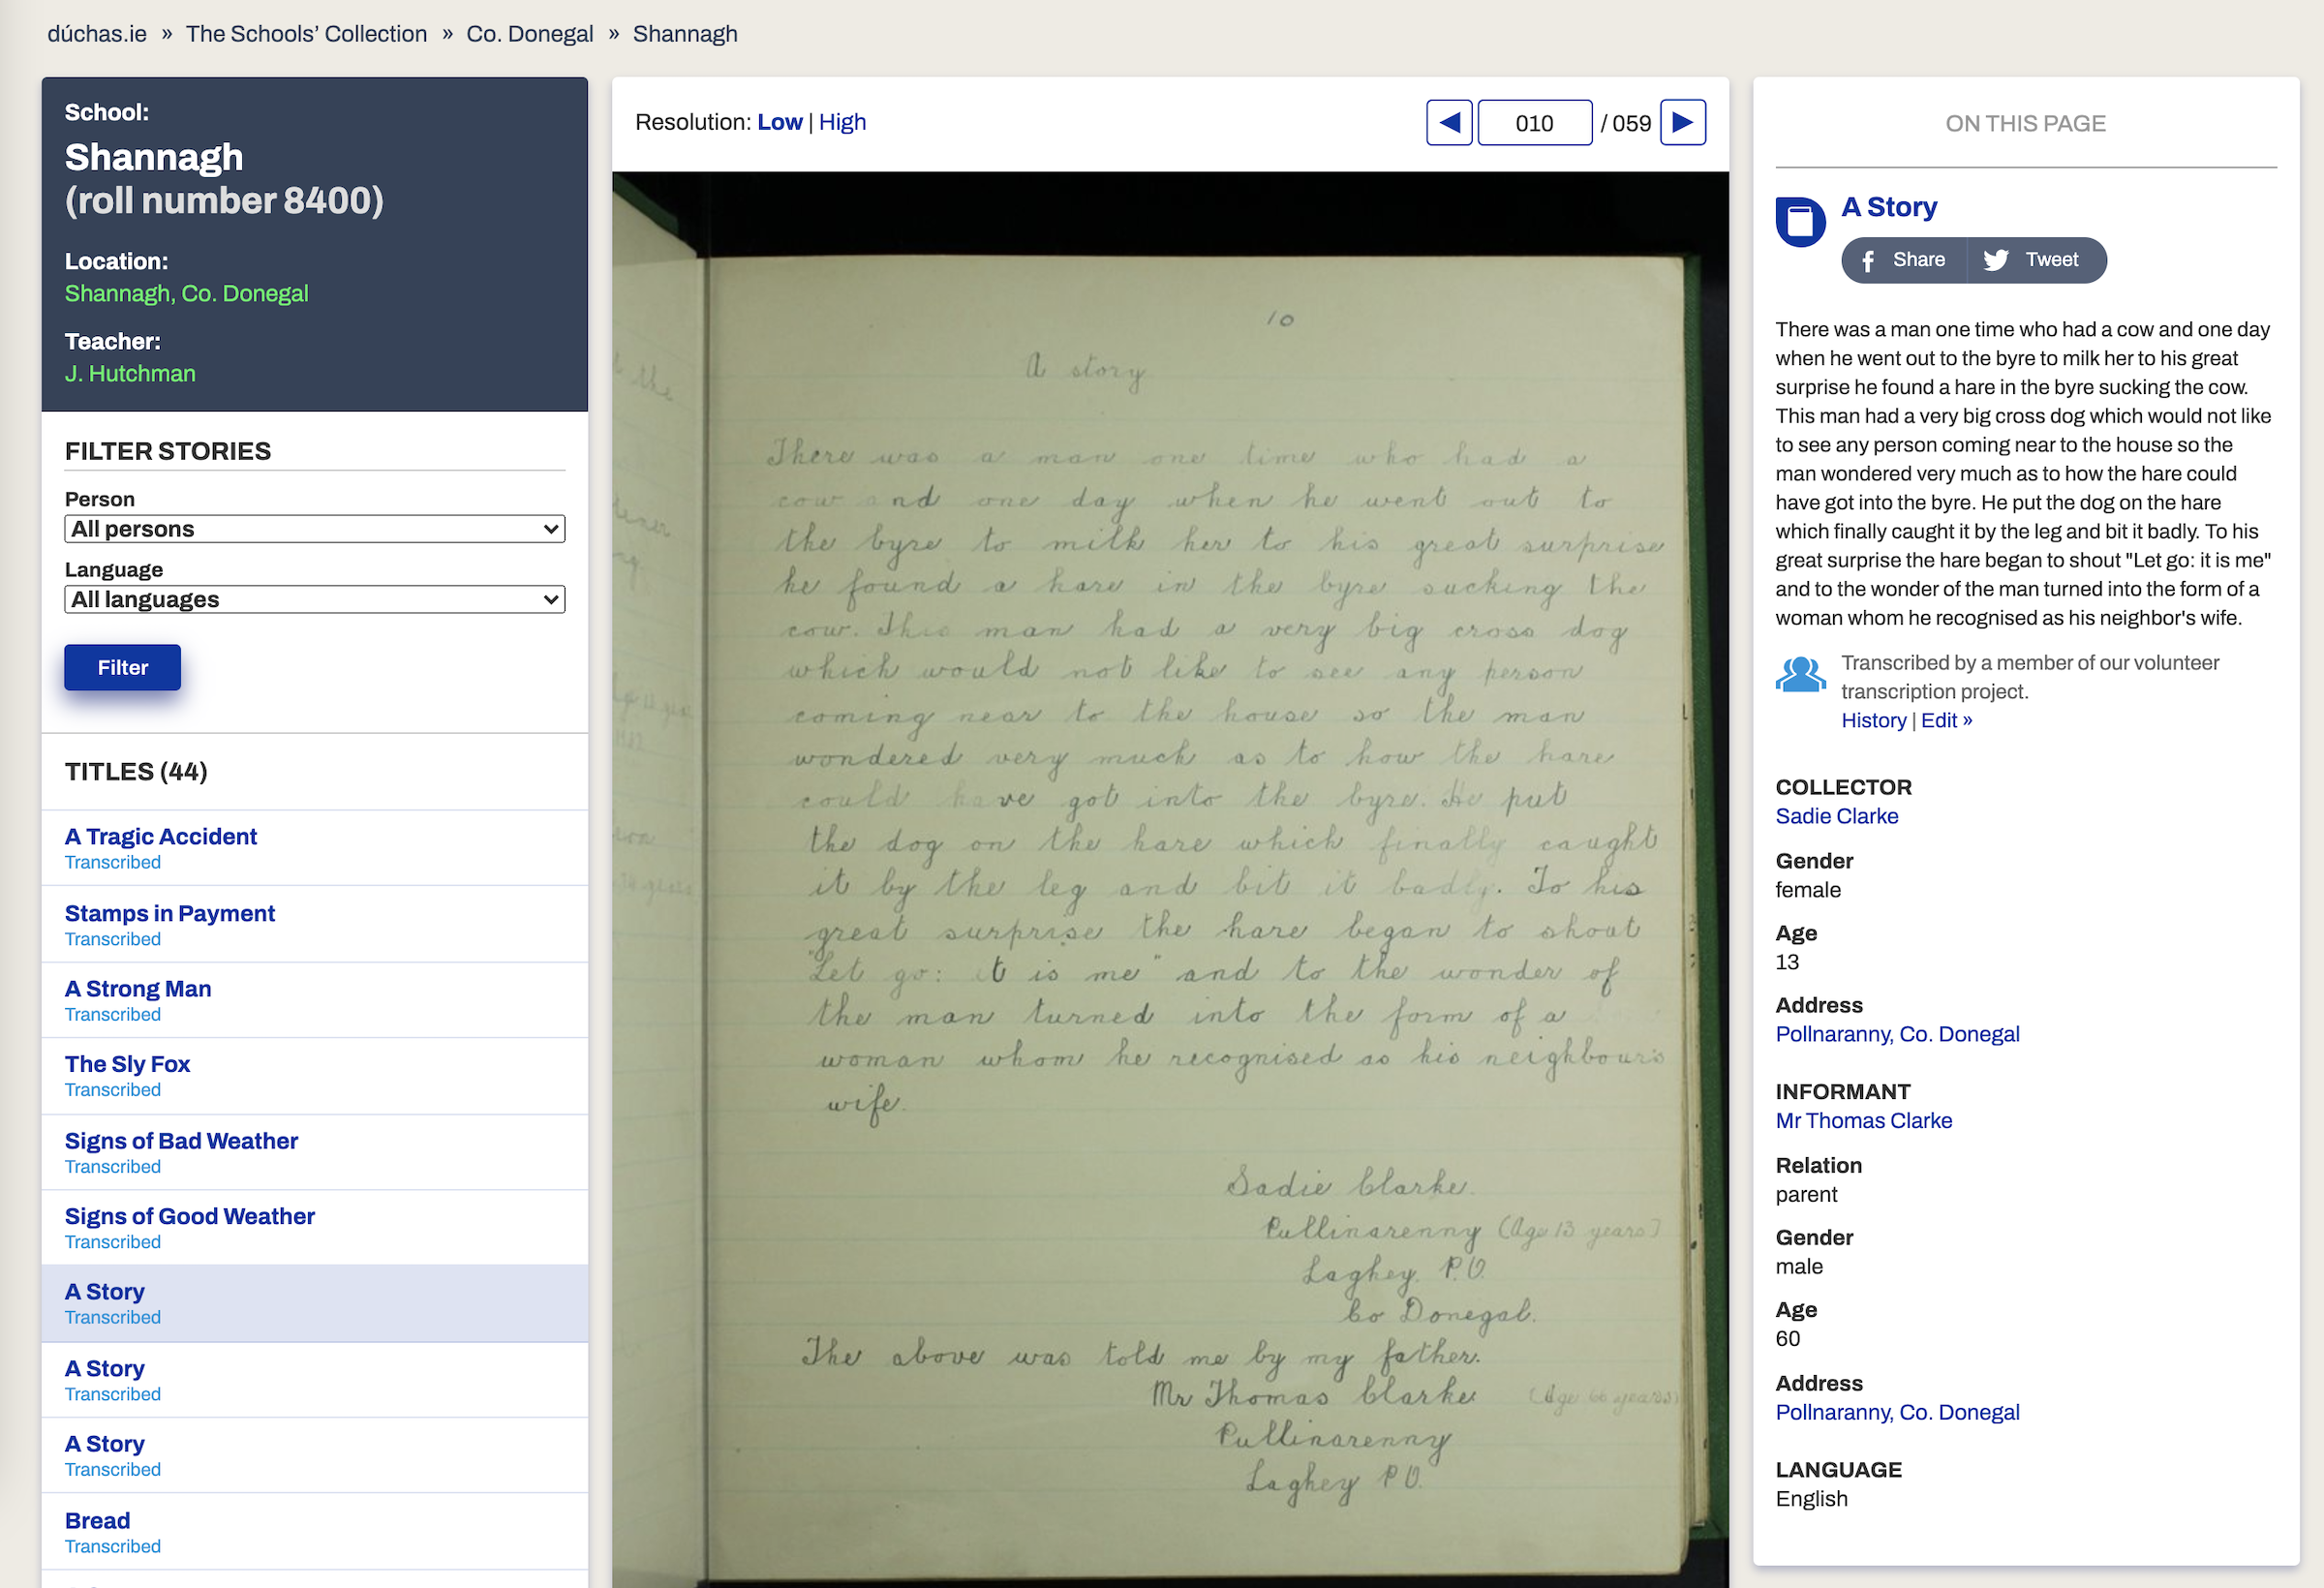 dúchas.ie » The Schools' Collection » Co. Donegal » Shannagh
School:
Shannagh
(roll number 8400)
Location:
Shannagh, Co. Donegal
Teacher:
J. Hutchman
FILTER STORIES
Person
All persons
Language
All languages
Filter
TITLES (44)
A Tragic Accident
Transcribed
Stamps in Payment
Transcribed
A Strong Man
Transcribed
The Sly Fox
Transcribed
Signs of Bad Weather
Transcribed
Signs of Good Weather
Transcribed
A Story
Transcribed
A Story
Transcribed
A Story
Transcribed
Bread
Transcribed
Resolution: Low | High
010 / 059
10
A story
There was a man one time who had a
cow and one day when he went out to
the byre to milk her to his great surprise
he found a hare in the byre sucking the
cow. This man had a very big cross dog
which would not like to see any person
coming near to the house so the man
wondered very much as to how the hare
could have got into the byre. He put
the dog on the hare which finally caught
it by the leg and bit it badly. To his
great surprise the hare began to shout
"Let go: it is me" and to the wonder of
the man turned into the form of a
woman whom he recognised as his neighbour's
wife.
Sadie Clarke.
Pullinarenny (Age 13 years)
Laghey. P.O.
Co Donegal.
The above was told me by my father.
Mr Thomas Clarke (Age years)
Pullinarenny
Laghey P.O.
the
ON THIS PAGE
A Story
Share Tweet
There was a man one time who had a cow and one day
when he went out to the byre to milk her to his great
surprise he found a hare in the byre sucking the cow.
This man had a very big cross dog which would not like
to see any person coming near to the house so the
man wondered very much as to how the hare could
have got into the byre. He put the dog on the hare
which finally caught it by the leg and bit it badly. To his
great surprise the hare began to shout "Let go: it is me"
and to the wonder of the man turned into the form of a
woman whom he recognised as his neighbor's wife.
Transcribed by a member of our volunteer
transcription project.
History | Edit »
COLLECTOR
Sadie Clarke
Gender
female
Age
13
Address
Pollnaranny, Co. Donegal
INFORMANT
Mr Thomas Clarke
Relation
parent
Gender
male
Age
60
Address
Pollnaranny, Co. Donegal
LANGUAGE
English